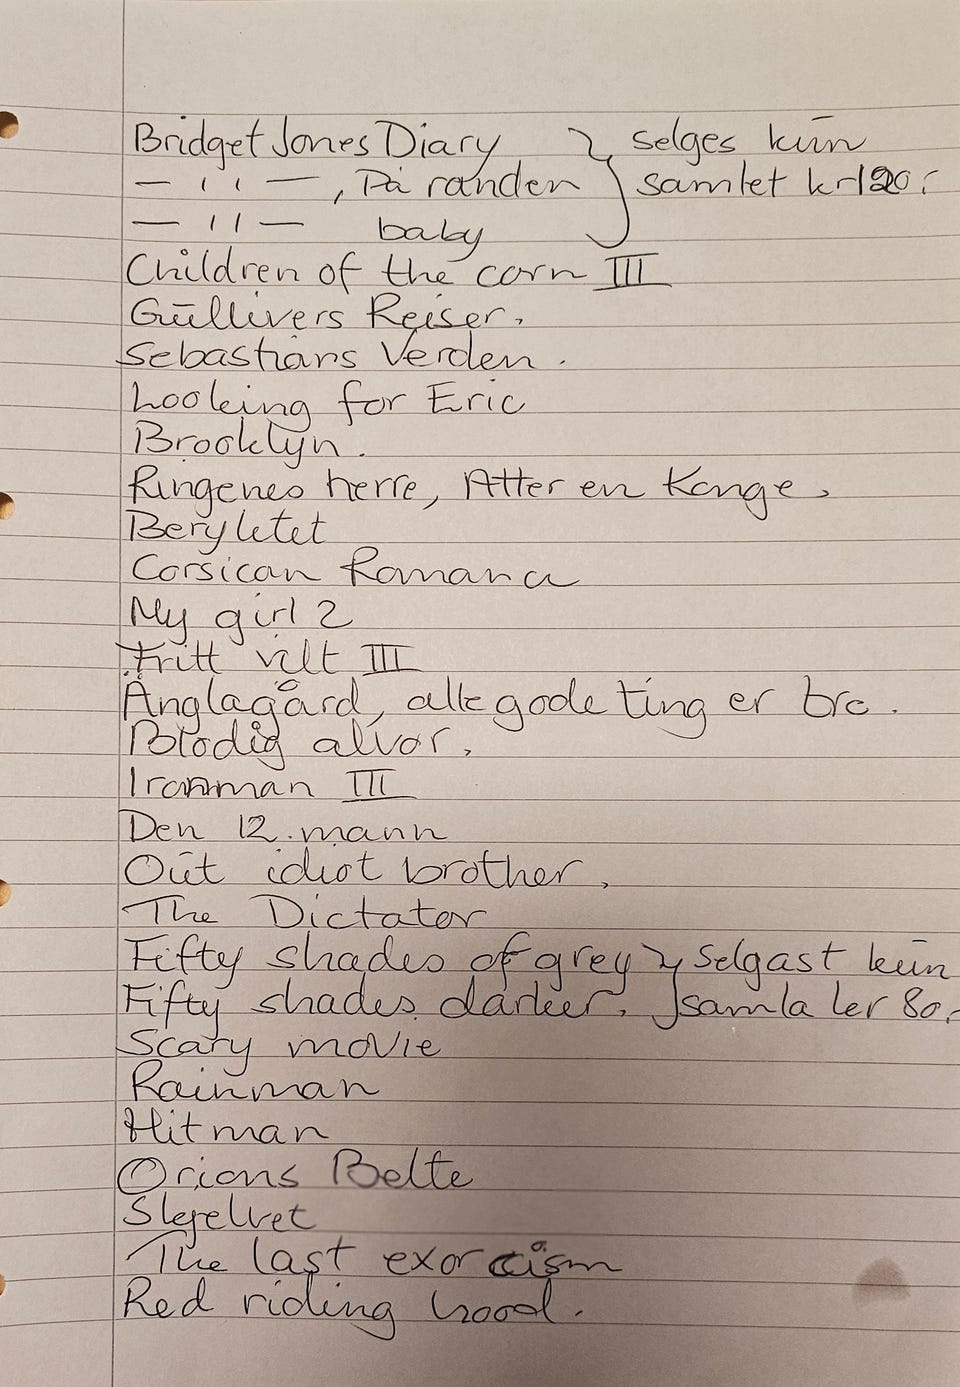 Bridget Jones Diary } selges kun
— 11 — , På randen } samlet kr 120,-
— 11 — baby
Children of the corn III
Gullivers Reiser.
Sebastians Verden.
Looking for Eric
Brooklyn.
Ringenes herre, Atter en Konge.
Beryktet
Corsican Romance
My girl 2
Fritt vilt III
Änglagård, alle gode ting er bra.
Blodig alvor.
Ironman III
Den 12. mann
Out idiot brother.
The Dictator
Fifty shades of grey } selgast kun
Fifty shades darker. } samla ker 80,-
Scary movie
Rainman
Hitman
Orions Belte
The last exorcism
Red riding hood.